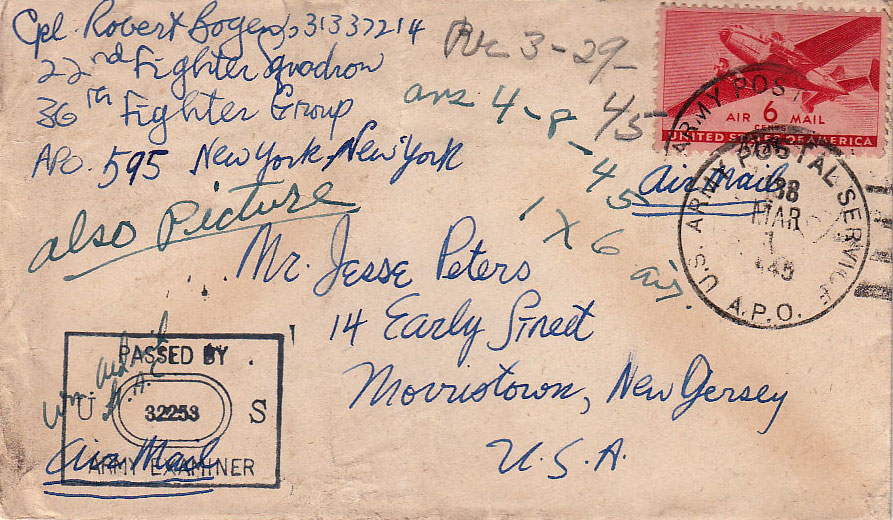 Cpl. Robert Bogen, 31337214
22nd Fighter Squadron
36th Fighter Group
APO. 595 New York, New York
also Picture
Rec 3-29-
45
ans 4-8
-45
1 X 6 air.
AIR 6 MAIL
CENTS
UNITED STATES OF AMERICA
Air Mail
ARMY POSTAL
U.S. ARMY POSTAL SERVICE
MAR
A.P.O.
Mr. Jesse Peters
14 Early Street
Morristown, New Jersey
U.S.A.
PASSED BY
U 32253 S
ARMY EXAMINER
Air Mail